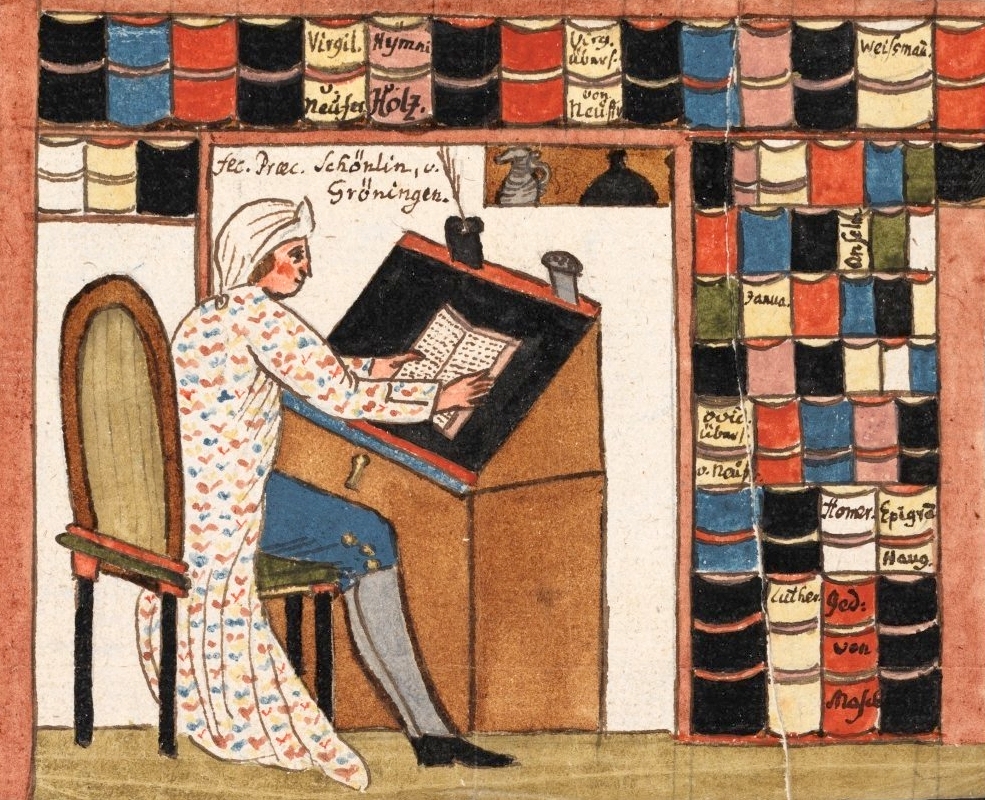 Virgil.
Neüfer
Hymni
Holz.
Virg.
übers.
von
Neüff
Weißman.
fec. Præc. Schönlin, v.
Gröningen.
Anselm
Janua.
Ovid.
übers
v. Neüf
Homer.
Epigra
Haug.
Luther
Ged:
von